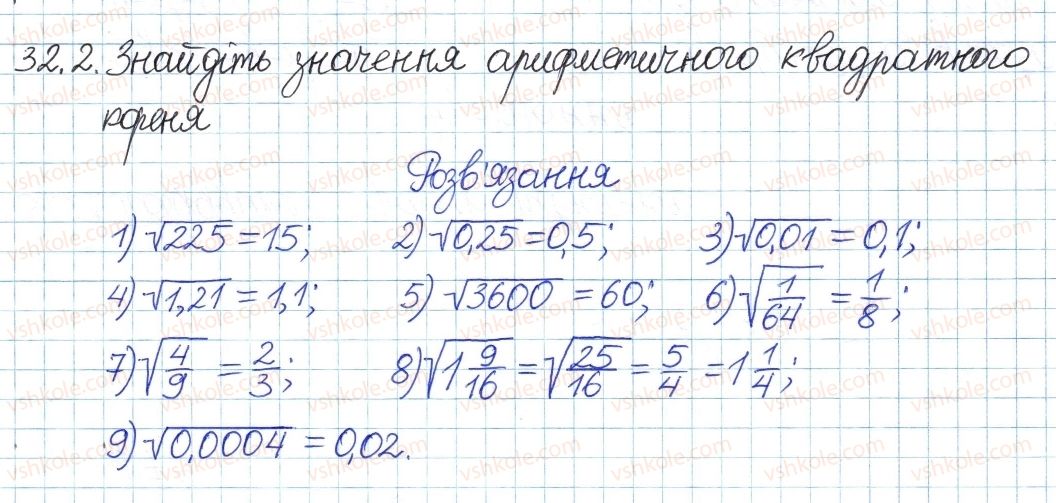 32.2. Знайдіть значення арифметичного квадратного
кореня
Розв'язання
1) √225 = 15; 2) √0,25 = 0,5; 3) √0,01 = 0,1;
4) √1,21 = 1,1; 5) √3600 = 60; 6) √(1/64) = 1/8;
7) √(4/9) = 2/3; 8) √(1 9/16) = √(25/16) = 5/4 = 1 1/4;
9) √0,0004 = 0,02.